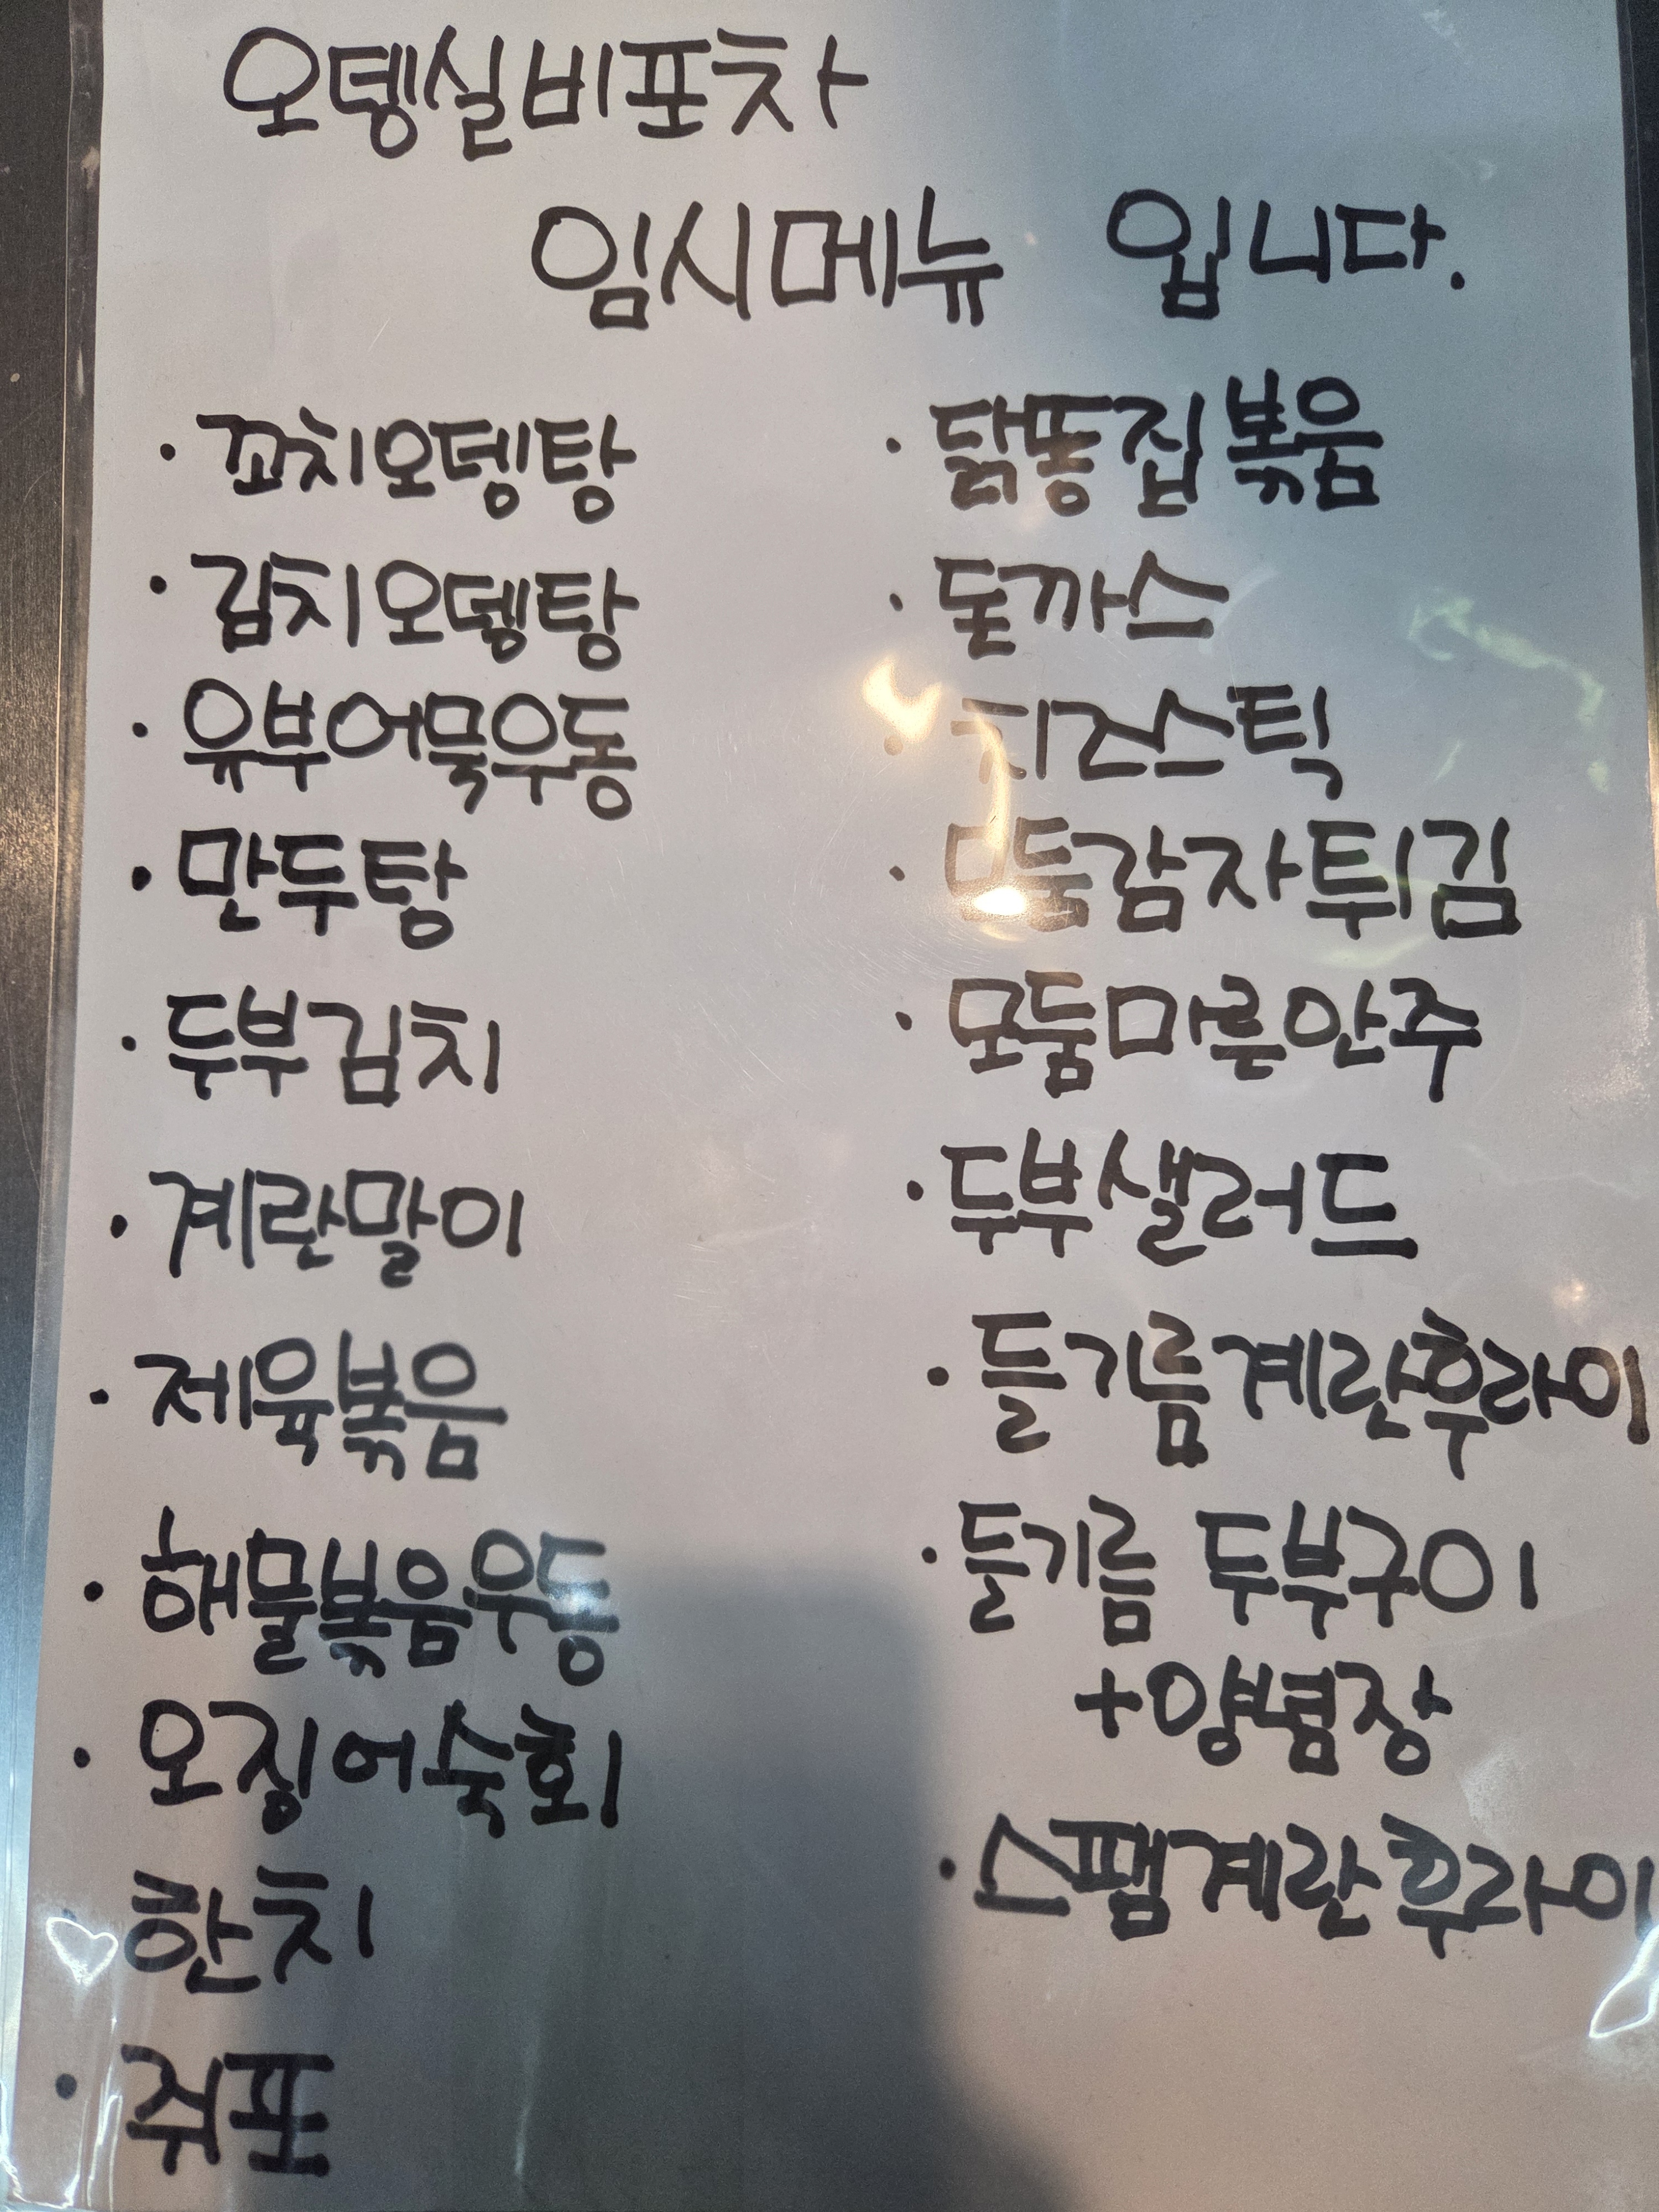 오뎅실비포차
임시메뉴 입니다.
· 꼬치오뎅탕
· 김치오뎅탕
· 유부어묵우동
· 만두탕
· 두부김치
· 계란말이
· 제육볶음
· 해물볶음우동
· 오징어숙회
· 한치
· 쥐포
· 닭똥집볶음
· 돈까스
· 치즈스틱
· 모둠감자튀김
· 모둠마른안주
· 두부샐러드
· 들기름계란후라이
· 들기름 두부구이
+양념장
· 스팸계란후라이